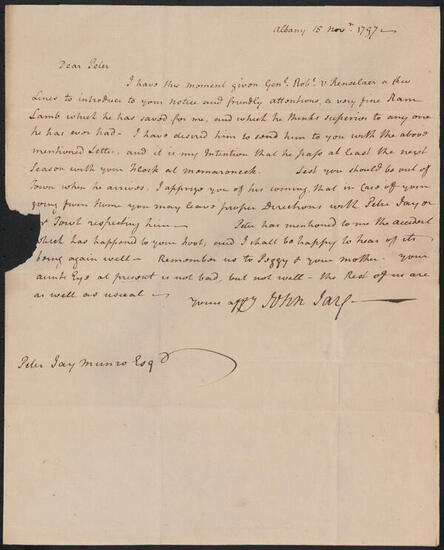 Albany 15 Novr. 1797 —
Dear Peter
I have this moment given Genl. Robt. v. Renselaer a few
Lines to introduce to your notice and friendly attentions, a very fine Ram
Lamb which he has saved for me, and which he thinks superior to any one
he has ever had — I have desired him to send him to you with the above
mentioned Letter, and it is my Intention that he pass at least the next
Season with your Flock at Momaroneck. Lest you should be out of
Town when he arrives, I apprize you of his coming, that in Case of your
going from Home you may leave proper Directions with Peter Jay or
respecting him — Peter has mentioned to me the accident
which has happened to your foot, and I shall be happy to hear of its
being again well — Remember us to Peggy & your mother. your
aunts Eye at present is not bad, but not well — the Rest of us are
as well as usual — Yours affy John Jay —
Peter Jay Munro Esqr